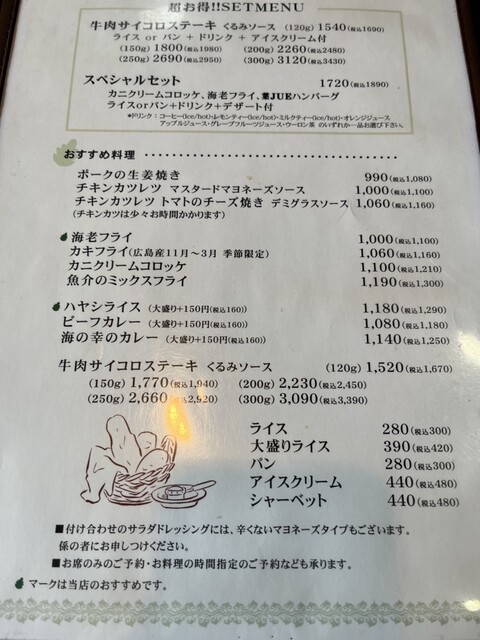 超お得!!SETMENU
牛肉サイコロステーキ くるみソース (120g) 1540(税込1690)
ライス or パン + ドリンク + アイスクリーム付
(150g) 1800(税込1980) (200g) 2260(税込2480)
(250g) 2690(税込2950) (300g) 3120(税込3430)
スペシャルセット 1720(税込1890)
カニクリームコロッケ、海老フライ、葉JUEハンバーグ
ライスorパン+ドリンク+デザート付
*ドリンク:コーヒー(ice/hot)・レモンティー(ice/hot)・ミルクティー(ice/hot)・オレンジジュース
アップルジュース・グレープフルーツジュース・ウーロン茶 のいずれか一品お選び下さい。
おすすめ料理
ポークの生姜焼き 990(税込1,080)
チキンカツレツ マスタードマヨネーズソース 1,000(税込1,100)
チキンカツレツ トマトのチーズ焼き デミグラスソース 1,060(税込1,160)
(チキンカツは少々お時間かかります)
海老フライ 1,000(税込1,100)
カキフライ(広島産11月〜3月 季節限定) 1,060(税込1,160)
カニクリームコロッケ 1,100(税込1,210)
魚介のミックスフライ 1,190(税込1,300)
ハヤシライス (大盛り+150円(税込160)) 1,180(税込1,290)
ビーフカレー (大盛り+150円(税込160)) 1,080(税込1,180)
海の幸のカレー (大盛り+150円(税込160)) 1,140(税込1,250)
牛肉サイコロステーキ くるみソース (120g) 1,520(税込1,670)
(150g) 1,770(税込1,940) (200g) 2,230(税込2,450)
(250g) 2,660(税込2,920) (300g) 3,090(税込3,390)
ライス 280(税込300)
大盛りライス 390(税込420)
パン 280(税込300)
アイスクリーム 440(税込480)
シャーベット 440(税込480)
■付け合わせのサラダドレッシングには、辛くないマヨネーズタイプもございます。
係の者にお申しつけください。
■お席のみのご予約・お料理の時間指定のご予約なども承ります。
マークは当店のおすすめです。